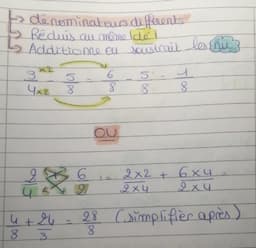 dénominateurs différents
Réduis au même dé
Additionne ou soustrait les nu
3 ×2 - 5 = 6 - 5 = 1
4 ×2 8 8 8 8
OU
2 + 6 = 2×2 + 6×4 =
4 2 2×4 2×4
4 + 24 = 28 (simplifier après)
8 8